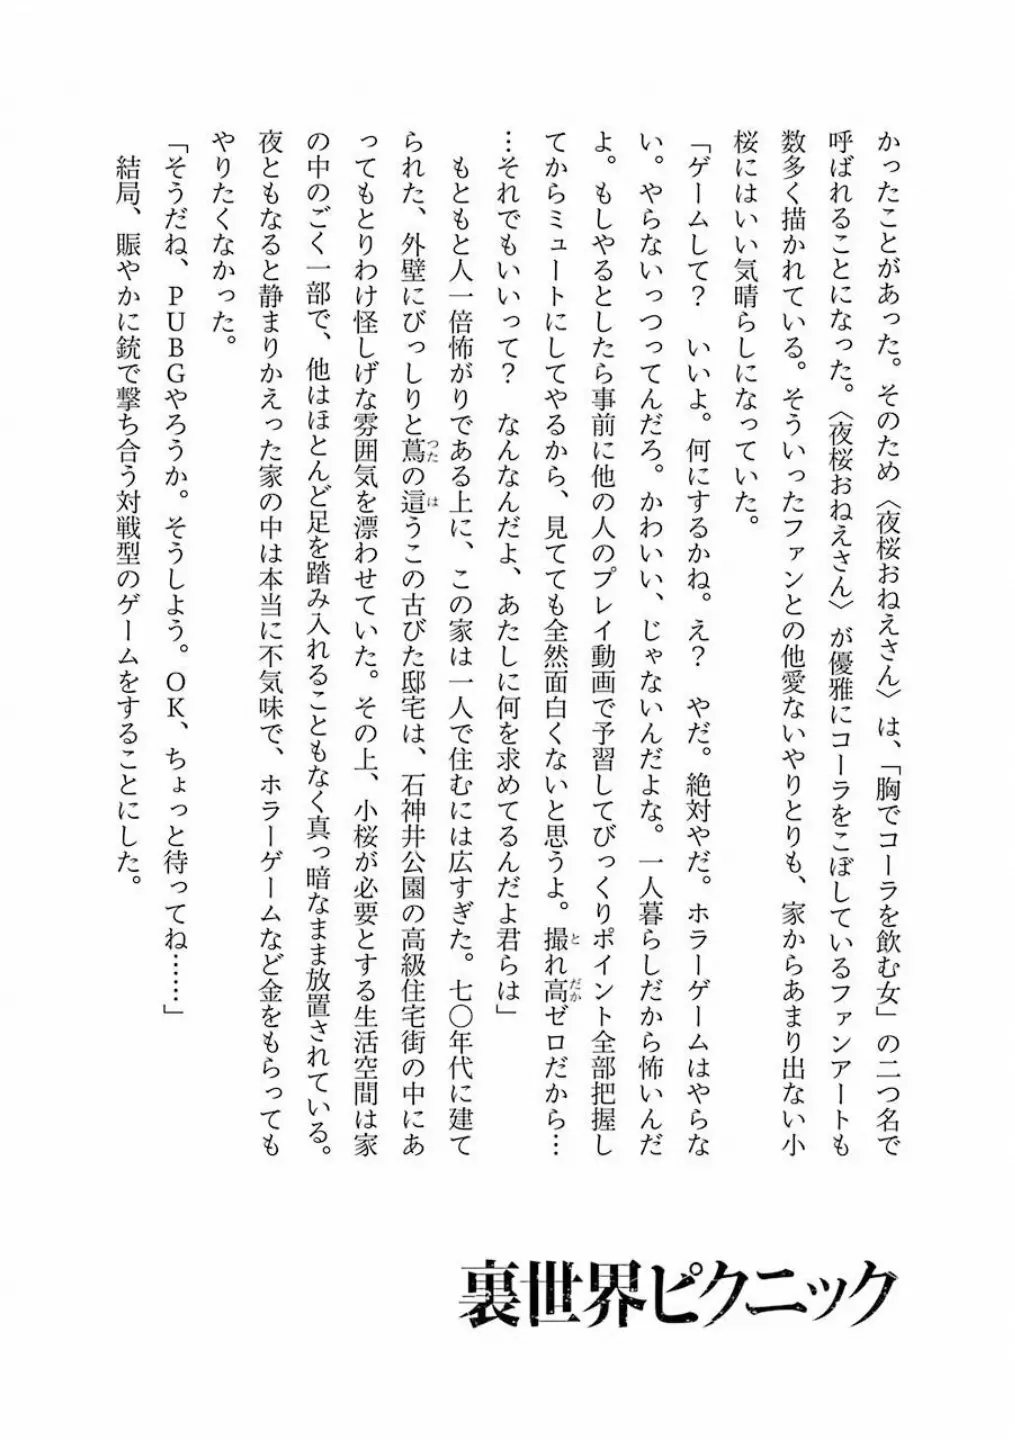 かったことがあった。そのため〈夜桜おねえさん〉は、「胸でコーラを飲む女」の二つ名で
呼ばれることになった。〈夜桜おねえさん〉が優雅にコーラをこぼしているファンアートも
数多く描かれている。そういったファンとの他愛ないやりとりも、家からあまり出ない小
桜にはいい気晴らしになっていた。
「ゲームして？　いいよ。何にするかね。え？　やだ。絶対やだ。ホラーゲームはやらな
い。やらないっつってんだろ。かわいい、じゃないんだよな。一人暮らしだから怖いんだ
よ。もしやるとしたら事前に他の人のプレイ動画で予習してびっくりポイント全部把握し
てからミュートにしてやるから、見てても全然面白くないと思うよ。撮れ高ゼロだから…
…それでもいいって？　なんなんだよ、あたしに何を求めてるんだよ君らは」
もともと人一倍怖がりである上に、この家は一人で住むには広すぎた。七〇年代に建て
られた、外壁にびっしりと蔦の這うこの古びた邸宅は、石神井公園の高級住宅街の中にあ
ってもとりわけ怪しげな雰囲気を漂わせていた。その上、小桜が必要とする生活空間は家
の中のごく一部で、他はほとんど足を踏み入れることもなく真っ暗なまま放置されている。
夜ともなると静まりかえった家の中は本当に不気味で、ホラーゲームなど金をもらっても
やりたくなかった。
「そうだね、PUBGやろうか。そうしよう。OK、ちょっと待ってね……」
結局、賑やかに銃で撃ち合う対戦型のゲームをすることにした。
裏世界ピクニック